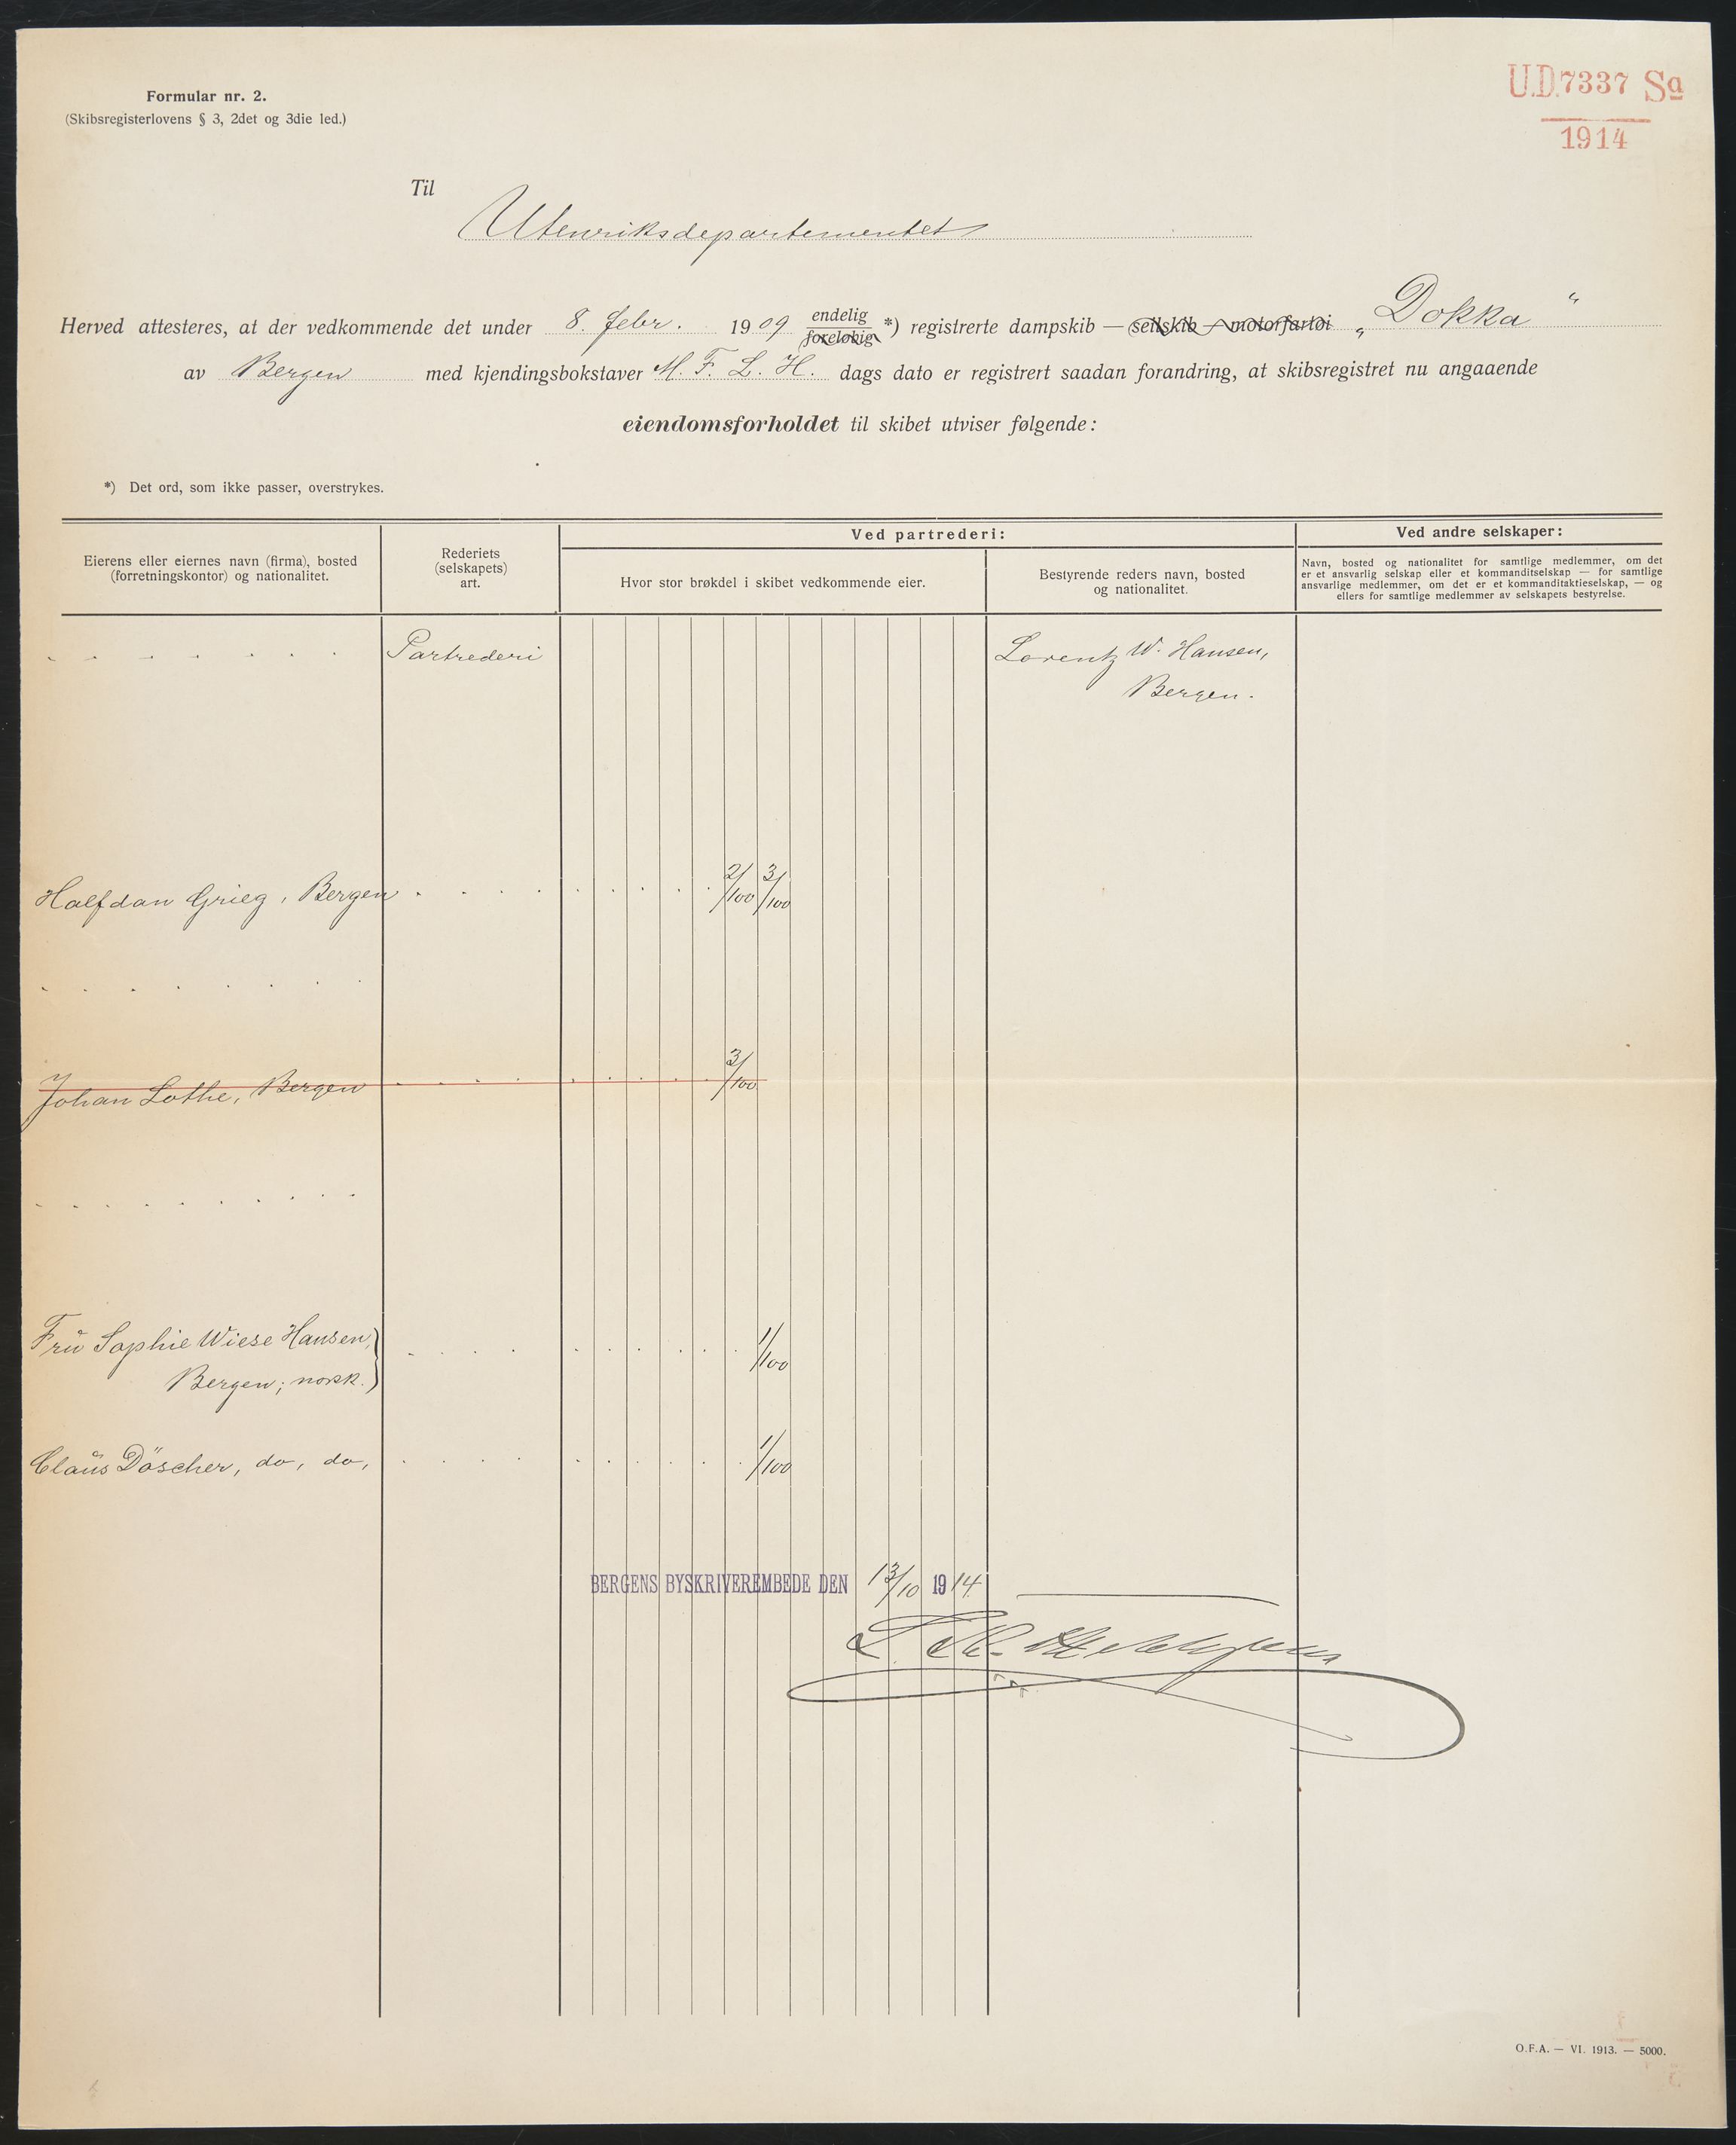 Formular nr. 2.
(Skibsregisterlovens § 3, 2det og 3die led.)
U.D.7337 Sa
1914
Til
Utenriksdepartementet
Herved attesteres, at der vedkommende det under 8. febr. 1909 endelig foreløbig *) registrerte dampskib — seilskib — motorfartøi „Dokka“
av Bergen med kjendingsbokstaver M. F. L. H. dags dato er registrert saadan forandring, at skibsregistret nu angaaende
eiendomsforholdet til skibet utviser følgende:
*) Det ord, som ikke passer, overstrykes.
Eierens eller eiernes navn (firma), bosted
(forretningskontor) og nationalitet.
Rederiets
(selskapets)
art.
Ved partrederi:
Hvor stor brøkdel i skibet vedkommende eier.
Bestyrende reders navn, bosted
og nationalitet.
Ved andre selskaper:
Navn, bosted og nationalitet for samtlige medlemmer, om det
er et ansvarlig selskap eller et kommanditselskap — for samtlige
ansvarlige medlemmer, om det er et kommanditaktieselskap, — og
ellers for samtlige medlemmer av selskapets bestyrelse.
. . . . . . . Partrederi Lorentz W. Hansen,
Bergen.
Halfdan Grieg, Bergen . . . . . . . . . . 2/100 3/100
. . . . . . . .
Johan Lothe, Bergen . . . . . . . . . 3/100
. . . . . . . . . .
Frŭ Sophie Wiese Hansen,
Bergen; norsk. } . . . . . . . . . . 1/100
Claŭs Döscher, do, do, . . . . . . . . . . 1/100
BERGENS BYSKRIVEREMBEDE DEN 13/10 1914
O.F.A. — VI. 1913. — 5000.